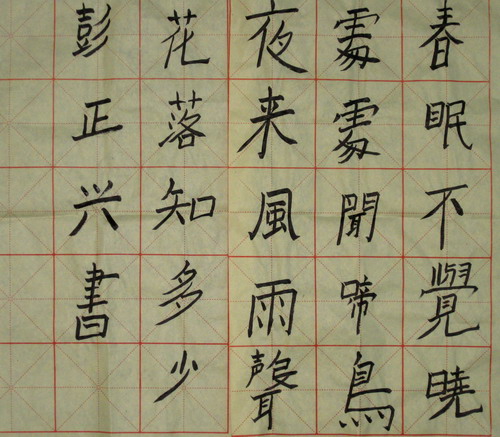 春眠不覺暁
處處聞啼鳥
夜来風雨聲
花落知多少
彭正兴書